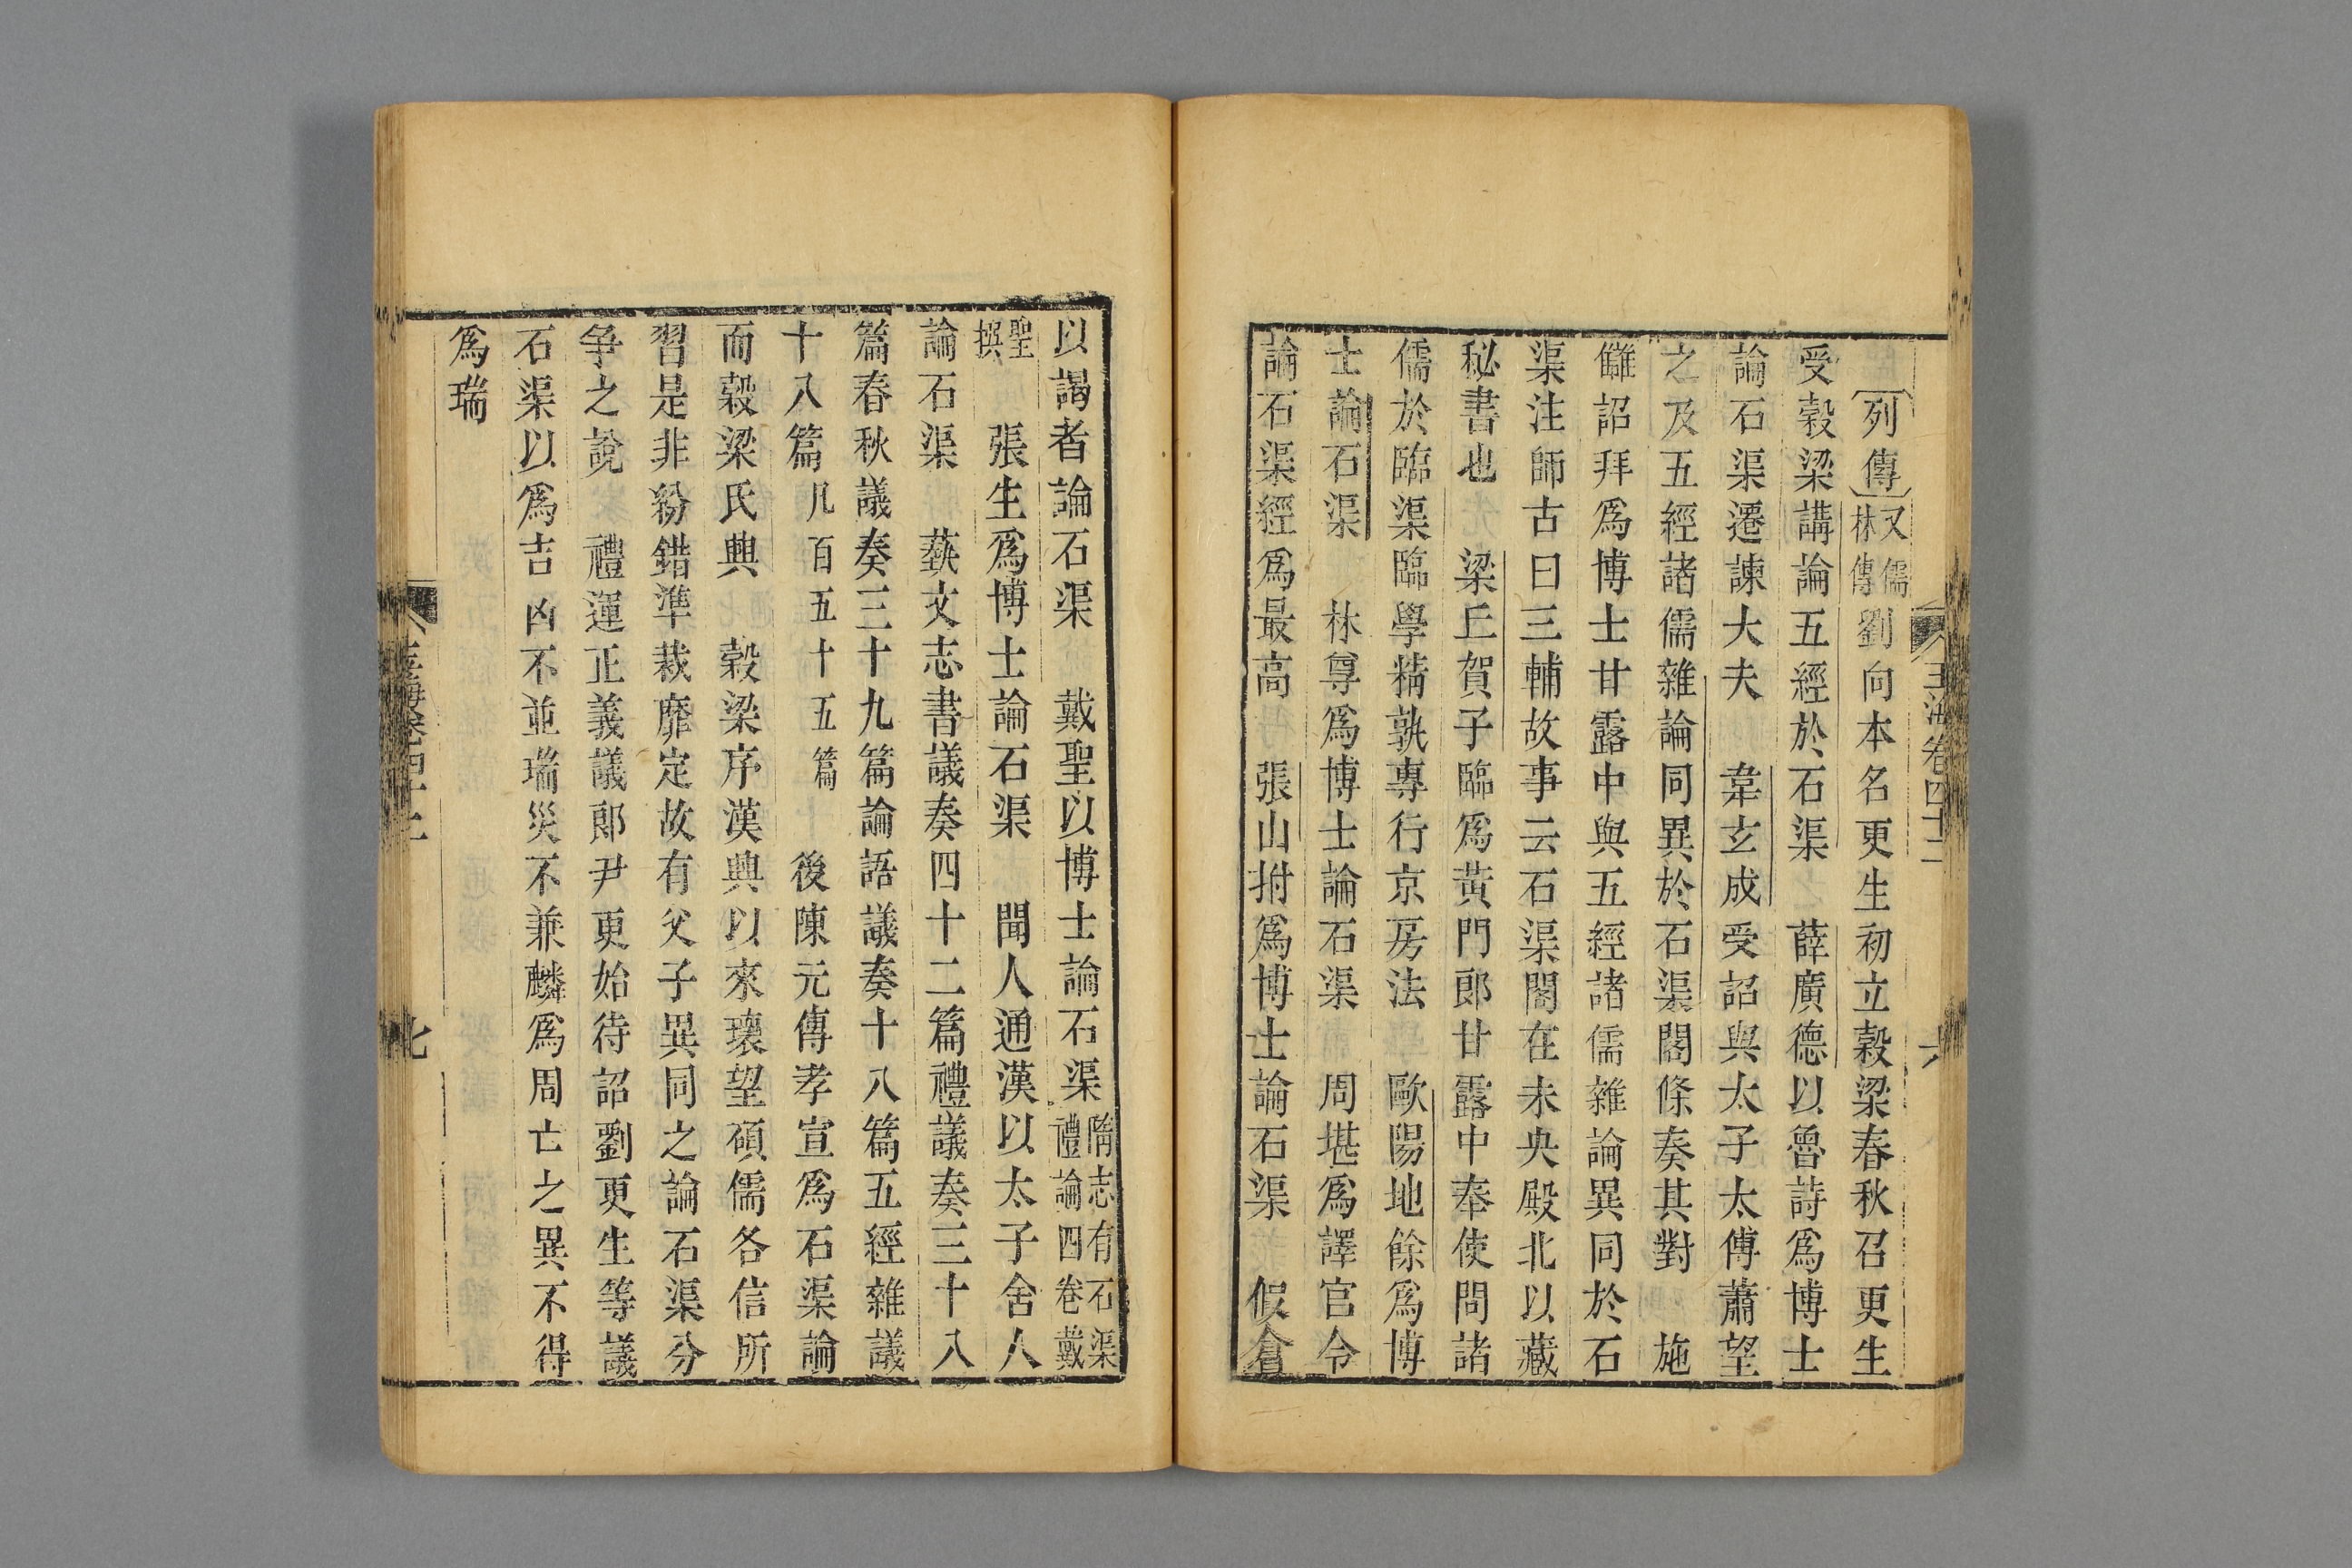 列傳又儒林傳劉向本名更生初立穀梁春秋召更生
受穀梁講論五經於石渠　薛廣德以魯詩爲博士
論石渠遷諫大夫　韋玄成受詔與太子太傅蕭望
之及五經諸儒雜論同異於石渠閣條奏其對　施
讎詔拜爲博士甘露中與五經諸儒雜論異同於石
渠注師古曰三輔故事云石渠閣在未央殿北以藏
秘書也　梁丘賀子臨爲黃門郎甘露中奉使問諸
儒於臨渠臨學精孰專行京房法　歐陽地餘爲博
士論石渠　林尊爲博士論石渠　周堪爲譯官令
論石渠經爲最高　張山拊爲博士論石渠　假倉
以謁者論石渠　戴聖以博士論石渠隋志有石渠禮論四卷戴
聖撰　張生爲博士論石渠　聞人通漢以太子舍人
論石渠　蓺文志書議奏四十二篇禮議奏三十八
篇春秋議奏三十九篇論語議奏十八篇五經雜議
十八篇凡百五十五篇　後陳元傳孝宣爲石渠論
而穀梁氏興　穀梁序漢興以來瓌望碩儒各信所
習是非紛錯準裁靡定故有父子異同之論石渠分
争之說　禮運正義議郎尹更始待詔劉更生等議
石渠以爲吉凶不並瑞災不兼麟爲周亡之異不得
爲瑞
玉海卷四十二
六
玉海卷四十二
七